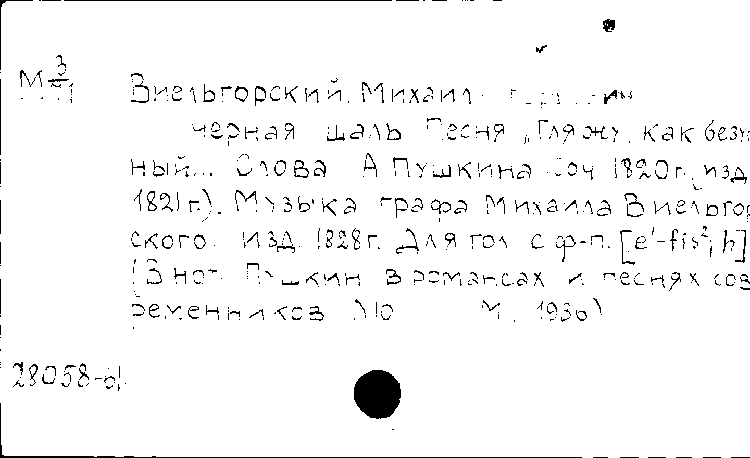 М 3/71
Виельгорский, Михаил
черная шаль Песня „Гляжу, как безум
ный... Слова А Пушкина Соч 1820г., изд
1821г.). Музыка графа Михаила Виельгор
ского. изд. 1828г. Для гол с ф-п. [e¹-fis²; h]
(В нот. Пушкин в романсах и песнях сов
ременников М. 1936)
28058-61